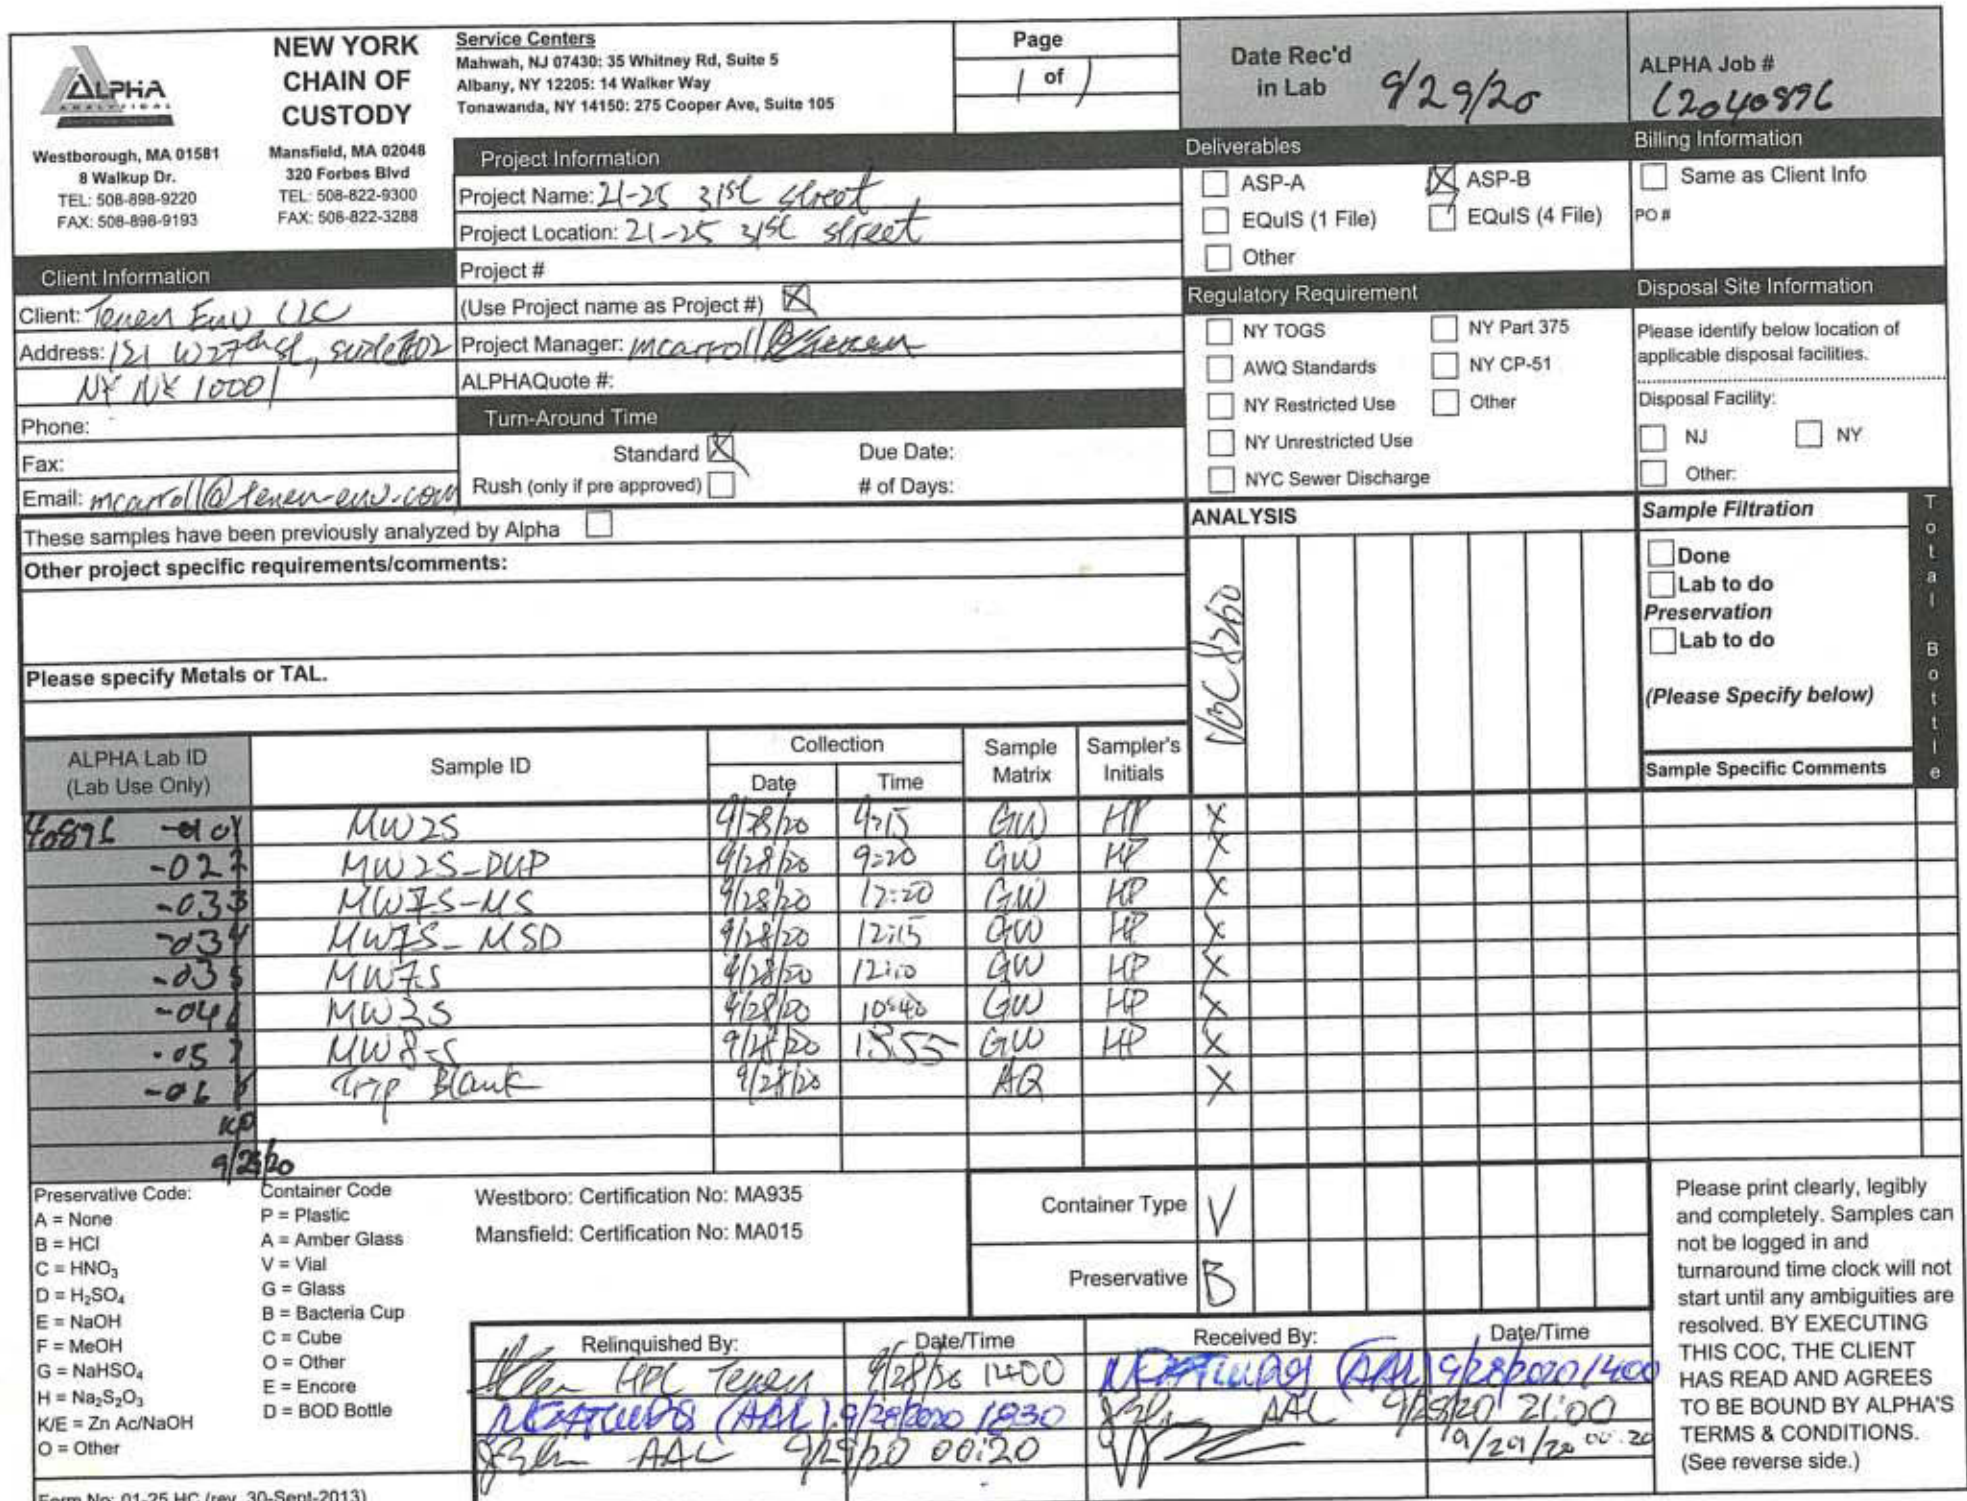 ALPHA
ANALYTICAL
Westborough, MA 01581
8 Walkup Dr.
TEL: 508-898-9220
FAX: 508-898-9193
NEW YORK
CHAIN OF
CUSTODY
Mansfield, MA 02048
320 Forbes Blvd
TEL: 508-822-9300
FAX: 508-822-3288
Service Centers
Mahwah, NJ 07430: 35 Whitney Rd, Suite 5
Albany, NY 12205: 14 Walker Way
Tonawanda, NY 14150: 275 Cooper Ave, Suite 105
Page
1 of 1
Date Rec'd
in Lab 9/29/20
ALPHA Job #
L2040896
Project Information
Project Name: 21-25 31st street
Project Location: 21-25 31st street
Project #
(Use Project name as Project #) X
Project Manager: mcarroll@tenen
ALPHAQuote #:
Client Information
Client: Tenen Env LLC
Address: 121 W27th st, suite 702
NY NY 10001
Phone:
Fax:
Email: mcarroll@tenen-env.com
Turn-Around Time
Standard X Due Date:
Rush (only if pre approved) # of Days:
Deliverables
ASP-A X ASP-B
EQuIS (1 File) EQuIS (4 File)
Other
Billing Information
Same as Client Info
PO #
Regulatory Requirement
NY TOGS NY Part 375
AWQ Standards NY CP-51
NY Restricted Use Other
NY Unrestricted Use
NYC Sewer Discharge
Disposal Site Information
Please identify below location of
applicable disposal facilities.
Disposal Facility:
NJ NY
Other:
These samples have been previously analyzed by Alpha
Other project specific requirements/comments:
Please specify Metals or TAL.
ANALYSIS
VOC 8260
Sample Filtration
Done
Lab to do
Preservation
Lab to do
(Please Specify below)
Sample Specific Comments
Total Bottle
ALPHA Lab ID
(Lab Use Only)
Sample ID
Collection
Date Time
Sample
Matrix
Sampler's
Initials
40896 -01 MW2S 9/28/20 9:15 GW HP X
-02 MW2S-DUP 9/28/20 9:20 GW HP X
-03 MW7S-MS 9/28/20 12:20 GW HP X
-03 MW7S-MSD 9/28/20 12:15 GW HP X
-03 MW7S 9/28/20 12:10 GW HP X
-04 MW3S 9/28/20 10:40 GW HP X
-05 MW8-S 9/28/20 GW HP X
-06 Trip Blank 9/28/20 AQ X
KP
9/29/20
Preservative Code:
A = None
B = HCl
C = HNO3
D = H2SO4
E = NaOH
F = MeOH
G = NaHSO4
H = Na2S2O3
K/E = Zn Ac/NaOH
O = Other
Container Code
P = Plastic
A = Amber Glass
V = Vial
G = Glass
B = Bacteria Cup
C = Cube
O = Other
E = Encore
D = BOD Bottle
Westboro: Certification No: MA935
Mansfield: Certification No: MA015
Container Type V
Preservative B
Relinquished By: Date/Time Received By: Date/Time
Tenen 9/28/20 1400 (AAL) 9/28/2020 1400
(AAL) 9/28/2020 1830 AAL 9/28/20 21:00
AAL 9/29/20 00:20 9/29/20 00:20
Please print clearly, legibly
and completely. Samples can
not be logged in and
turnaround time clock will not
start until any ambiguities are
resolved. BY EXECUTING
THIS COC, THE CLIENT
HAS READ AND AGREES
TO BE BOUND BY ALPHA'S
TERMS & CONDITIONS.
(See reverse side.)
Form No: 01-25 HC (rev. 30-Sept-2013)